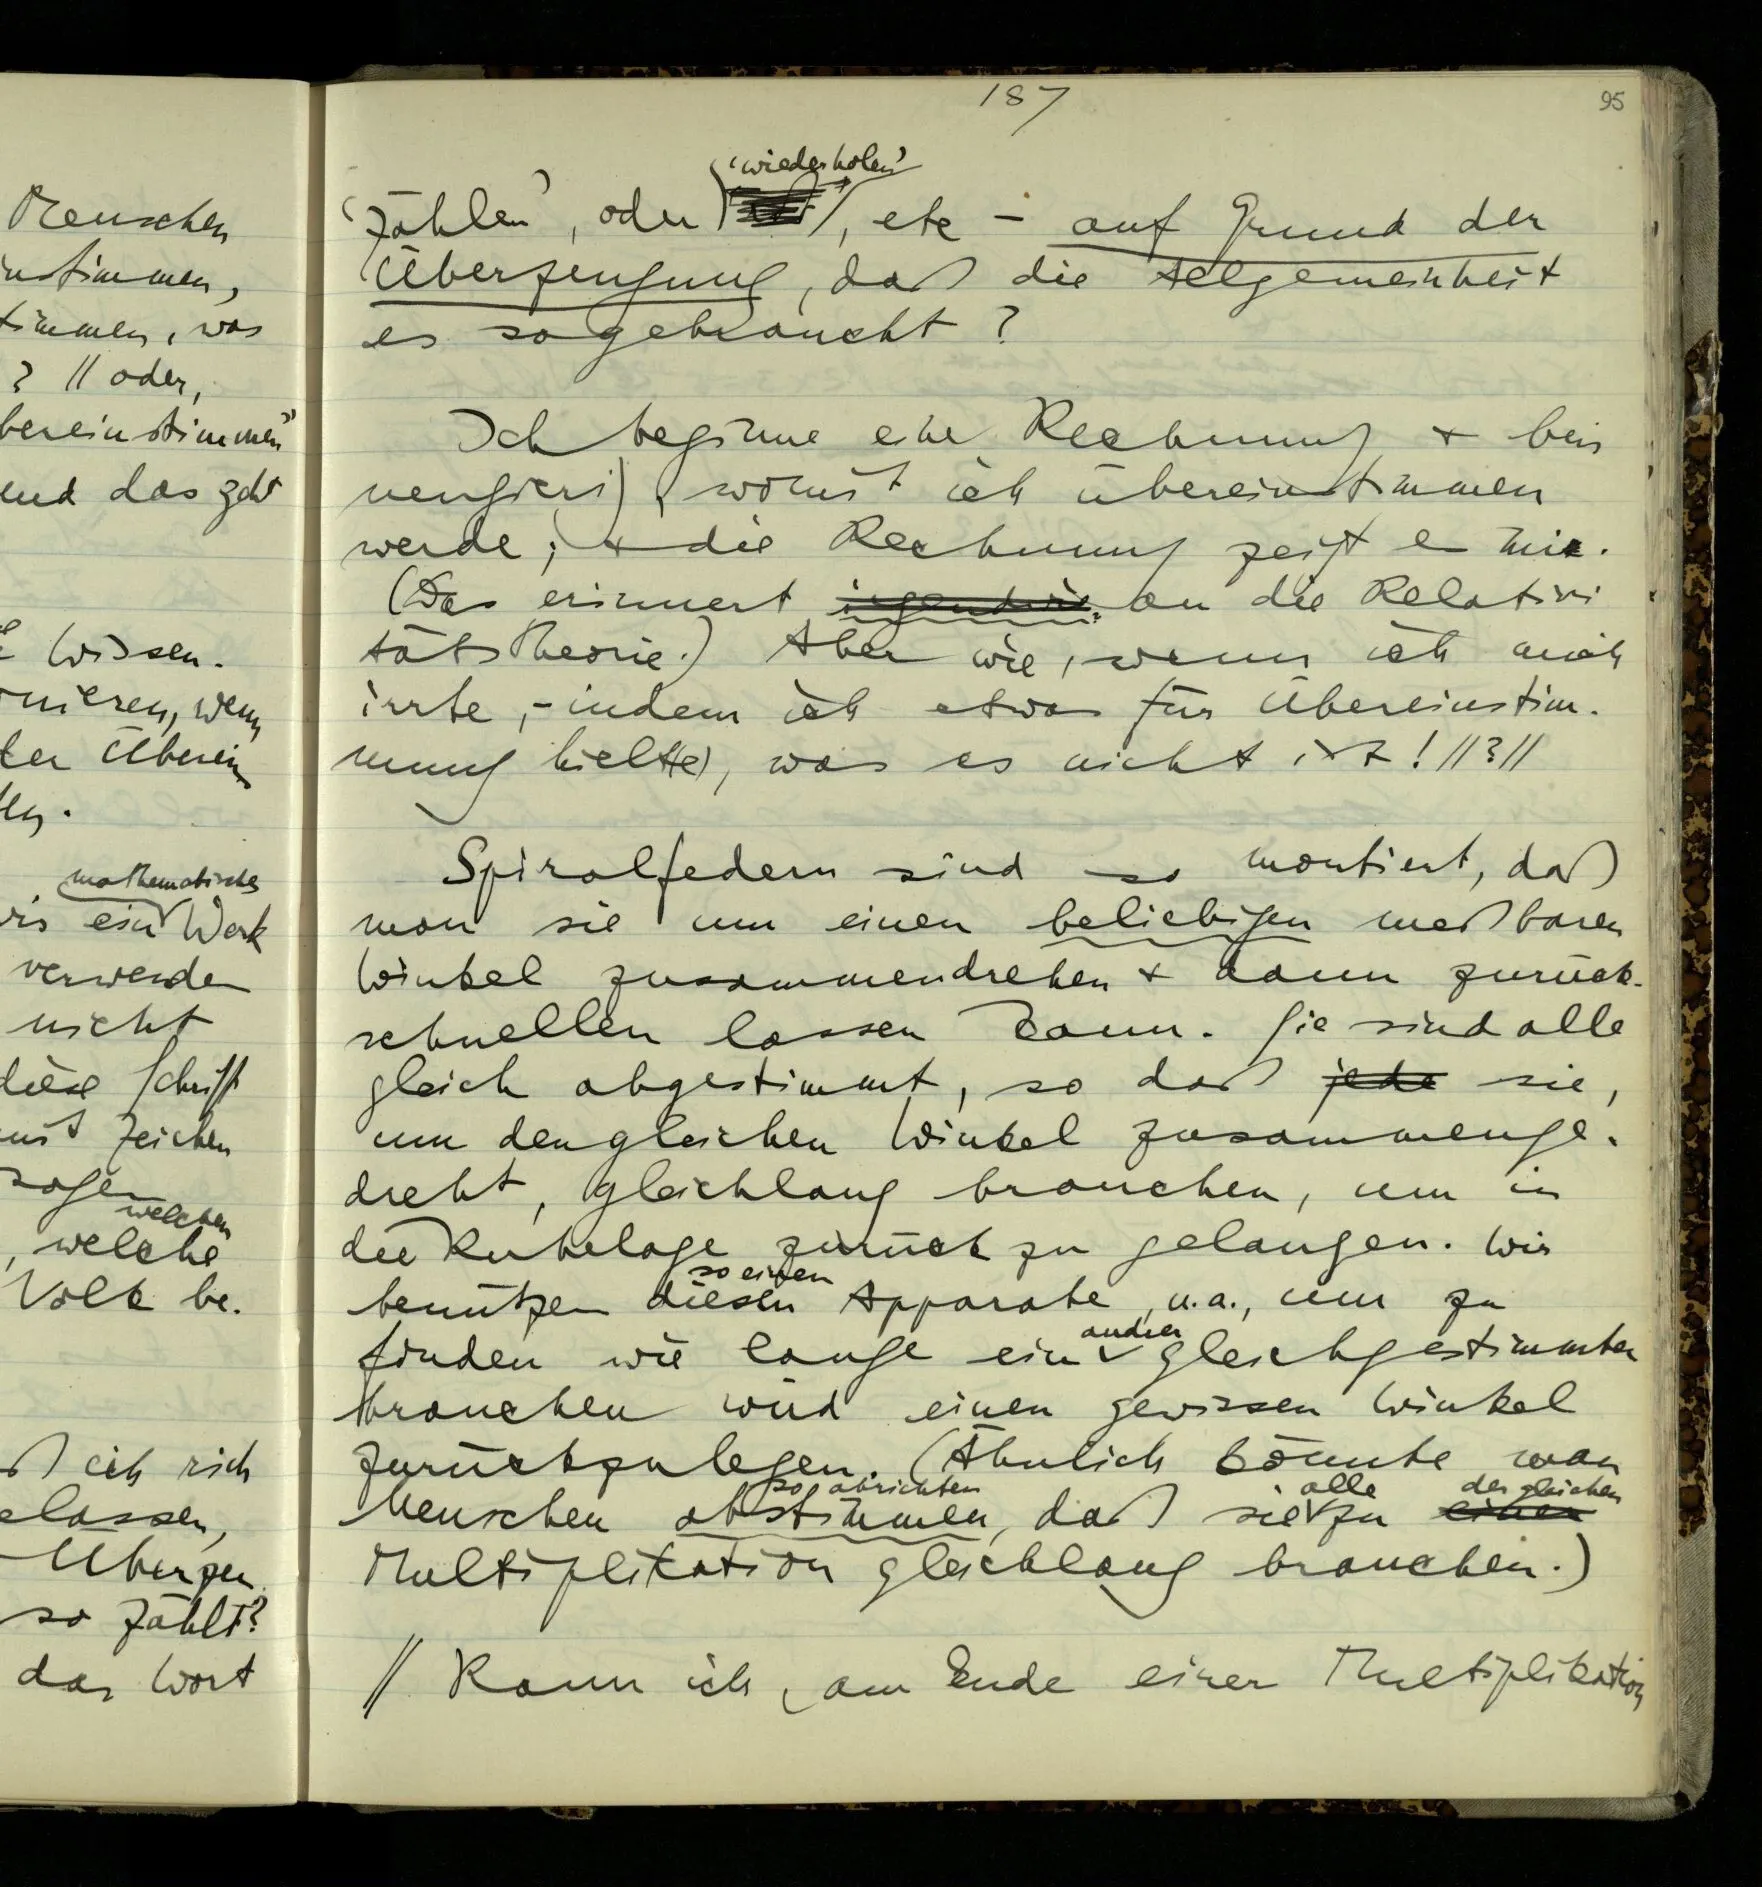 Menschen
instimmen,
timmen, was
? // oder,
bereinstimmen"
end das geht
Wissen.
onieren, wenn
der Überein
mathematisches
ein Werk
verwenden
nicht
diese Schrift
mit Zeichen
sagen
welchen
, welche
Volk be-
ß ich sich
elassen,
Überzeu
so zählt?
das Wort
187
95
'wiederholen'
'zählen', oder , etc – auf Grund der
Überzeugung, daß die Allgemeinheit
es so gebraucht?
Ich beginne eine Rechnung & bin
neugierig, womit ich übereinstimmen
werde; & die Rechnung zeigt es mir.
(Das erinnert irgendwie an die Relativi
tätstheorie.) Aber wie, wenn ich mich
irrte, – indem ich etwas für Übereinstim-
mung hielt(e), was es nicht ist! //?//
Spiralfedern sind so montiert, daß
man sie um einen beliebigen meßbaren
Winkel zusammendrehen & dann zurück-
schnellen lassen kann. Sie sind alle
gleich abgestimmt, so daß jede sie,
um den gleichen Winkel zusammenge-
dreht, gleichlang brauchen, um in
die Ruhelage zurück zu gelangen. Wir
so einen
benützen diesen Apparate, u.a., um zu
andrer
finden wie lange ein gleichgestimmter
brauchen wird einen gewissen Winkel
zurückzulegen. (Ähnlich könnte man
so abrichten alle der gleichen
Menschen abstimmen, daß sie zu einer
Multiplikation gleichlang brauchen.)
// Kann ich, am Ende einer Multiplikation